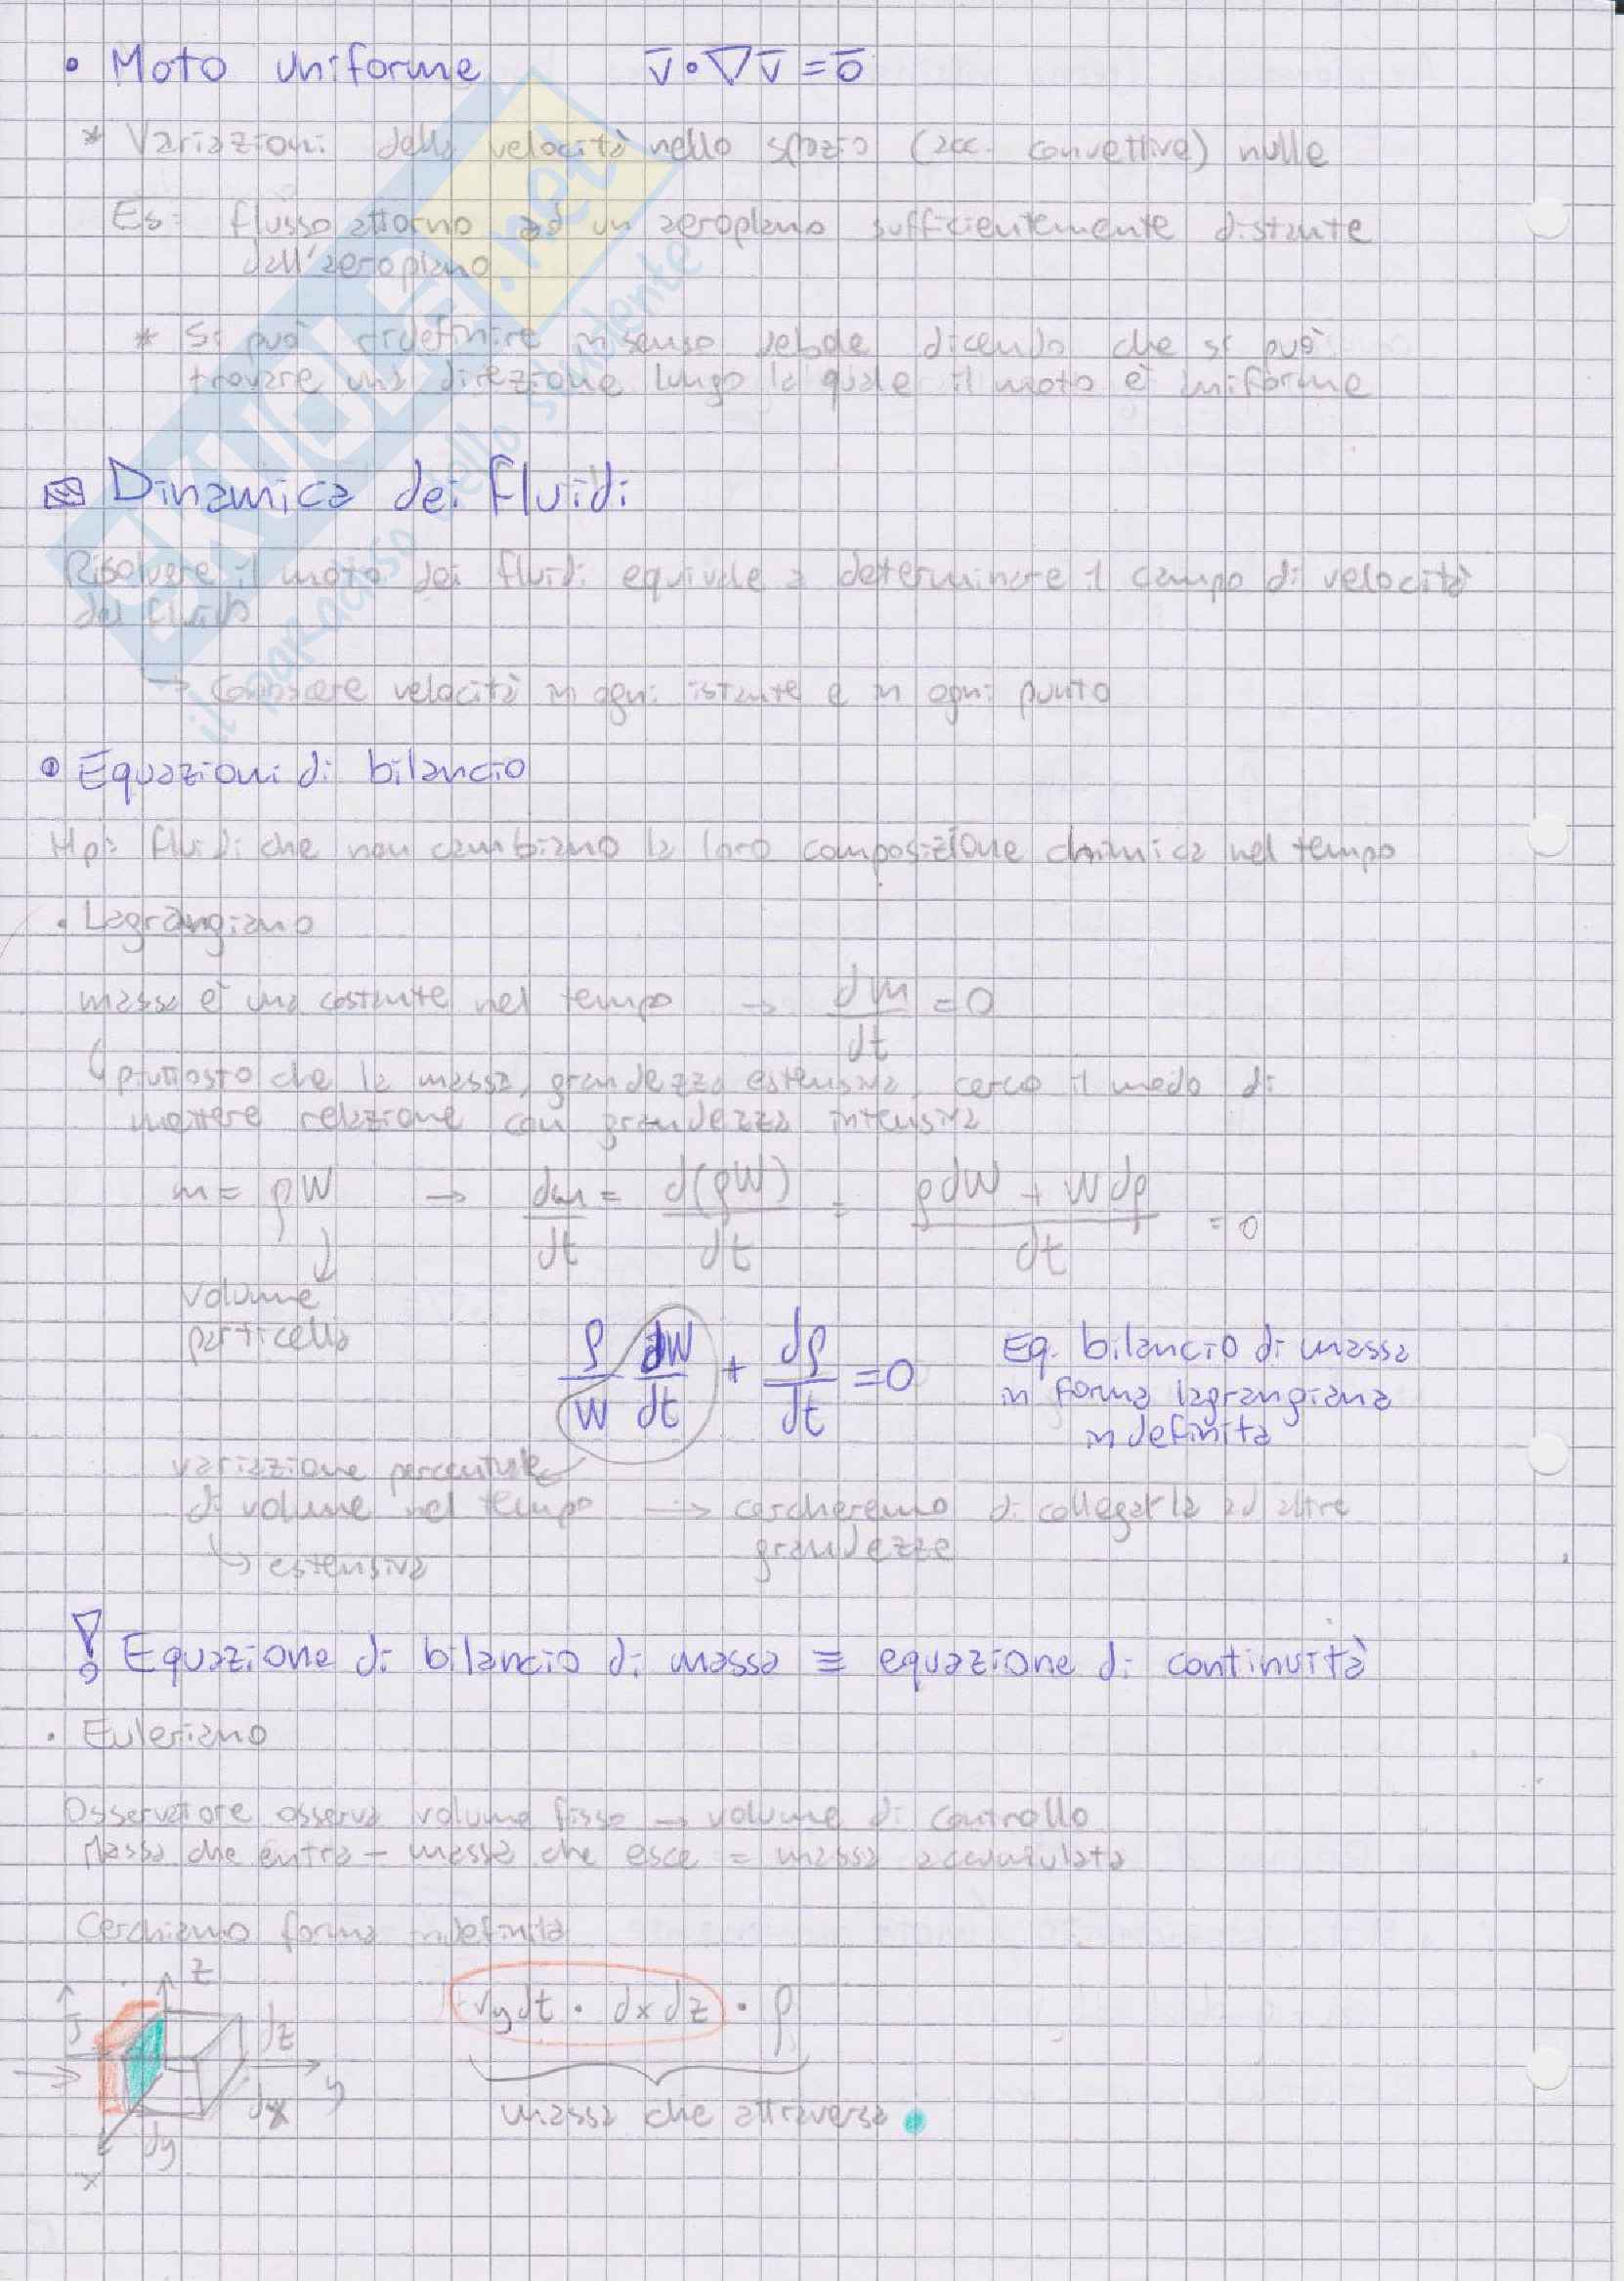 • Moto uniforme v̄ • ∇v̄ = ō
* Variazioni della velocità nello spazio (acc. convettive) nulle
Es: flusso attorno ad un aeroplano sufficientemente distante
dall'aeroplano
* Si può ridefinire in senso debole dicendo che si può
trovare una direzione lungo la quale il moto è uniforme
Dinamica dei fluidi
Risolvere il moto dei fluidi equivale a determinare il campo di velocità
del fluido
→ conoscere velocità in ogni istante e in ogni punto
• Equazioni di bilancio
Hp: fluidi che non cambiano la loro composizione chimica nel tempo
• Lagrangiano
massa è una costante nel tempo → dm/dt = 0
↳ piuttosto che la massa, grandezza estensiva, cerco il modo di
mettere relazione con grandezza intensiva
m = ρW → dm/dt = d(ρW)/dt = (ρdW + Wdρ)/dt = 0
volume
particella
ρ/W dW/dt + dρ/dt = 0 Eq. bilancio di massa
in forma lagrangiana
indefinita
variazione percentuale
di volume nel tempo → cercheremo di collegarla ad altre
grandezze
↳ estensiva
! Equazione di bilancio di massa ≡ equazione di continuità
• Euleriano
Osservatore osserva volume fisso → volume di controllo
Massa che entra - massa che esce = massa accumulata
Cerchiamo forma indefinita
z
dz
y
dx
dy
x
vy dt • dx dz • ρ
massa che attraversa
EXUOLA.net
il paradiso dello studente